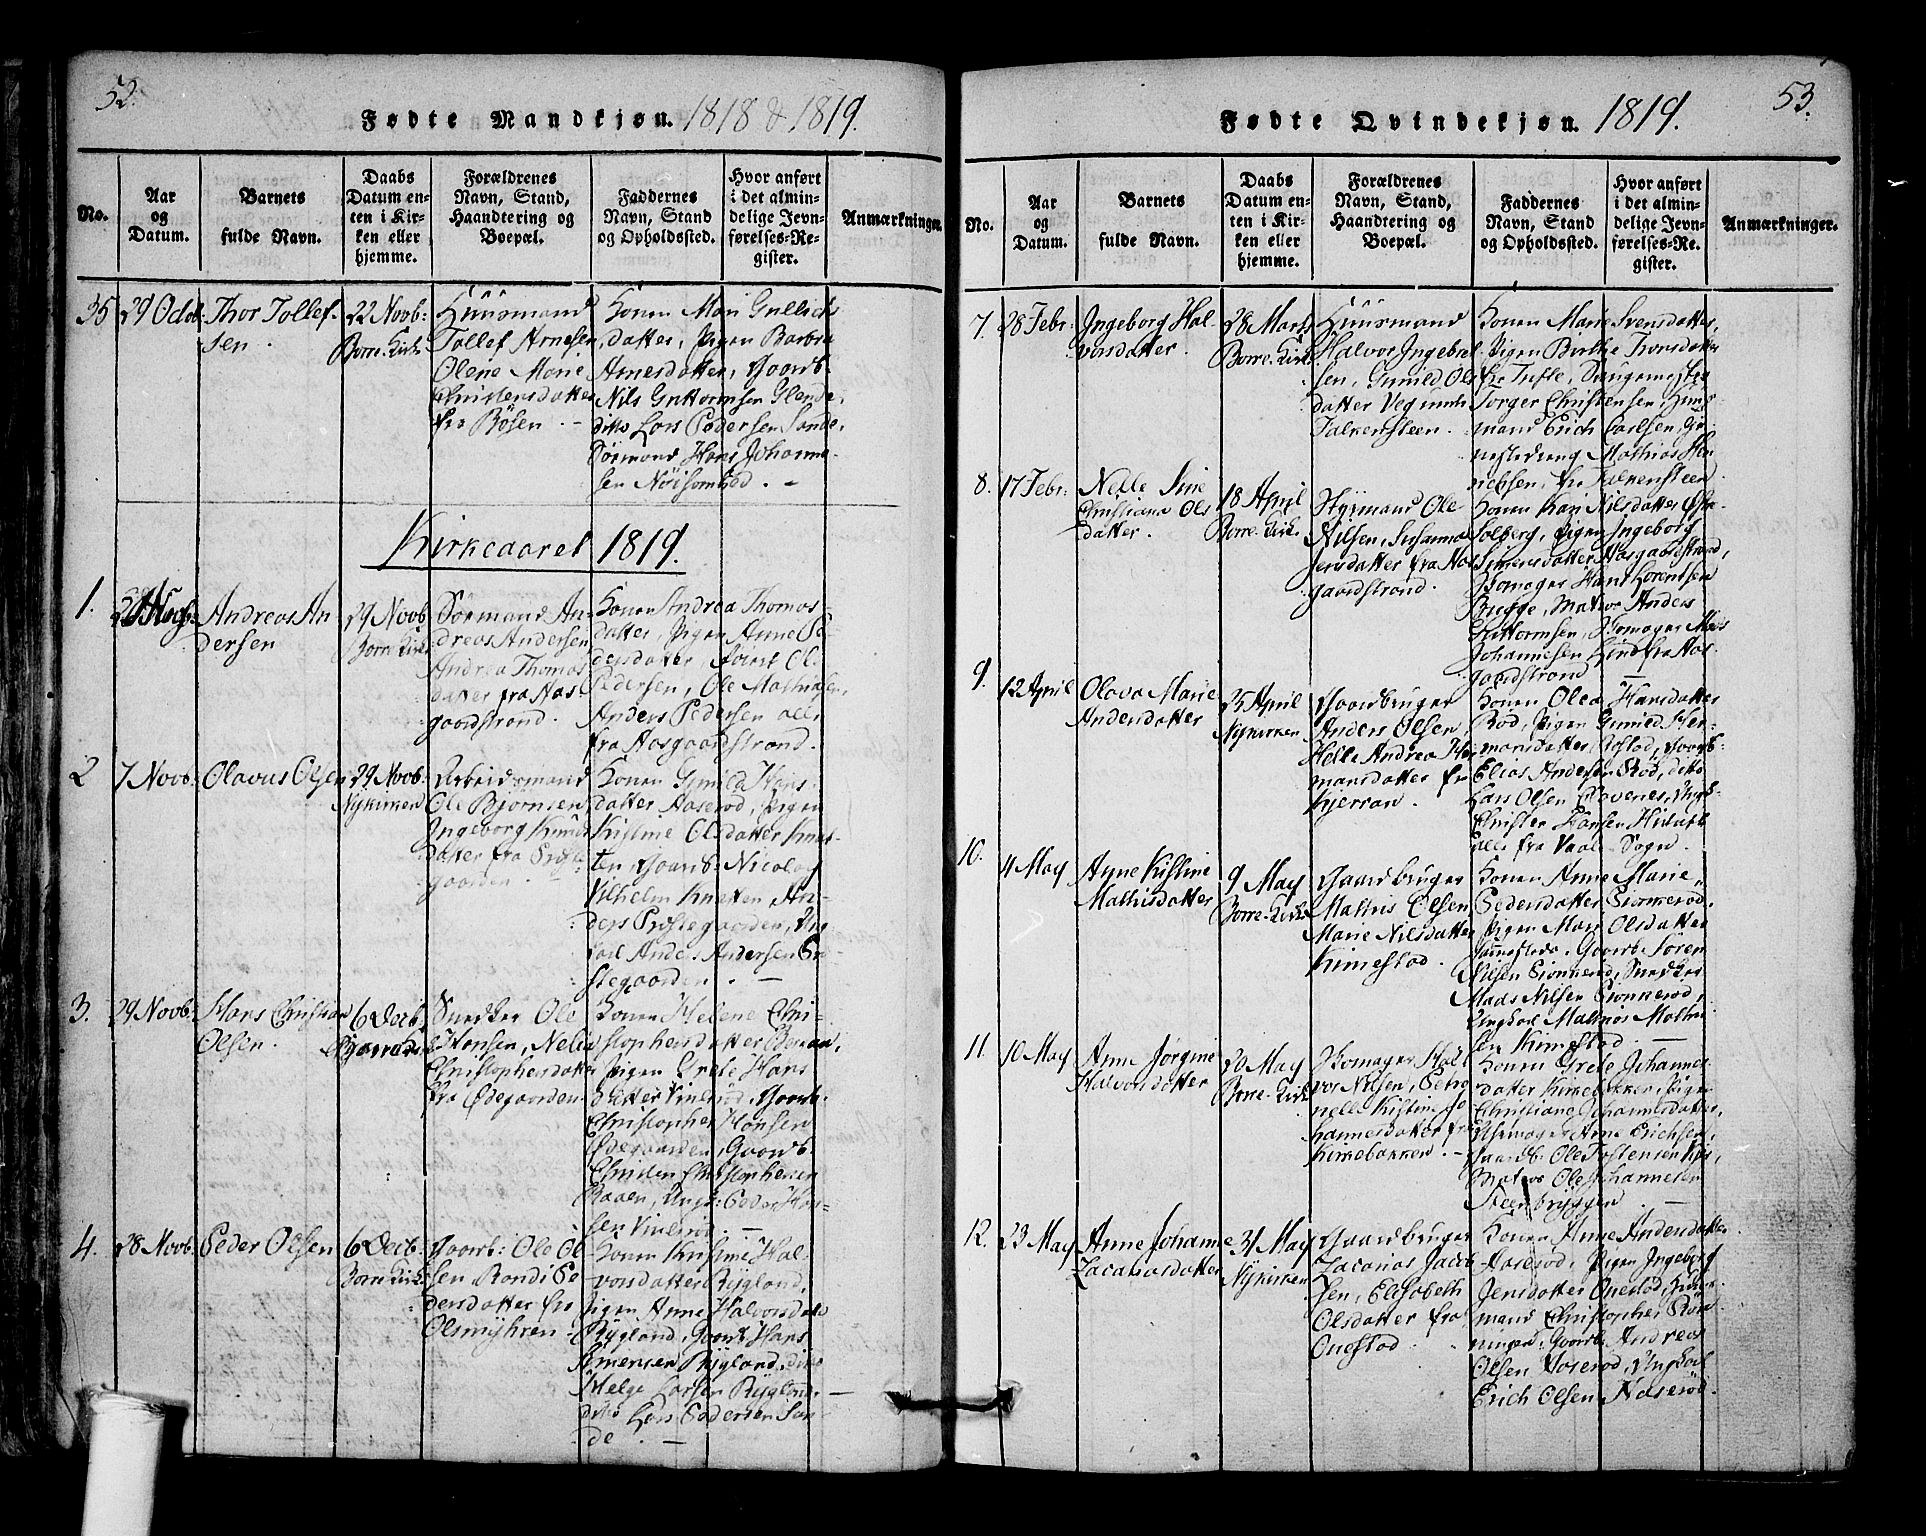 52.
Fødte Mandkjøn. 1818 & 1819.
No.
Aar
og
Datum.
Barnets
fulde Navn.
Daabs
Datum en-
ten i Kir-
ken eller
hjemme.
Forældrenes
Navn, Stand,
Haandtering og
Boepæl.
Faddernes
Navn, Stand
og Opholdssted.
Hvor anført
i det almin-
delige Jevn-
førelses-Re-
gister.
Anmærkninger.
35
29 Octob:
Thor Tollef-
sen.
22 Novb:
Borre-Kirke
Huusmand
Tollef Arnesen
Olene Marie
Christensdatter
fra Røsen. -
Konen Mari Gullichs
datter, Pigen Barbra
Arnesdatter, Gaardb.
Nils Guttormsen Glende,
ditto Lars Pedersen Sande,
Sørmand Hans Johanne-
sen
Kirkeaaret 1819.
1.
Andreas An
dersen
29 Novb
Borre Kirke
Sørmand An-
dreas Andersen
Andrea Thomas
datter fra Aas
gaardstrand.
Konen Andrea Thomas-
datter, Pigen Anne Pe-
dersdatter, Ole
Pedersen, Ole Mathiasen,
Anders Pedersen alle
fra Aasgaardstrand.
2
7 Novb:
Olavus Olsen
29 Novb:
Nykirken
Arbeidsmand
Ole Bjørnsen
Ingeborg Knuds
datter fra Præste
gaarden. -
Konen Gunild Hans
datter Aaserød, Pigen
Kistine Olsdatter Knat-
ten, Gaardb: Nicolay
Vilhelm Knatten, An-
ders Præstegaarden, Ung
karl Andersen Præ-
stegaarden. -
3.
29 Novb:
Hans Christian
Olsen.
6 Decb.
Snedker Ole
Hansen, Nelia
Christophersdatter
fra Ødegaarden
Konen Helene Chri-
stophersdatter
Pigen Grete Hans
datter Vinlrød, Gaardb.
Christopher Hansen
Ødegaarden, Gaardb.
Christen Christophersen
Ungk: Peder Han-
sen Vinlrød. -
4.
28 Novb.
Peder Olsen
6 Decb
Borre Kirke
Gaardb: Ole Ol-
sen Randi Pe
dersdatter fra
Olsmyhren
Konen Kistine Hal-
vorsdatter Rygland,
Pigen Anne Halvorsdatter
Rygland, Gaardb Hans
Rygland, ditto
Helge Larsen Rygland -
ditto Lars Pedersen San-
de. -
53.
Fødte Qvindekjøn. 1819.
No.
Aar
og
Datum.
Barnets
fulde Navn.
Daabs
Datum en-
ten i Kir-
ken eller
hjemme.
Forældrenes
Navn, Stand,
Haandtering og
Boepæl.
Faddernes
Navn, Stand
og Opholdssted.
Hvor anført
i det almin-
delige Jevn-
førelses-Re
gister.
Anmærkninger.
7.
28 Febr:
Ingeborg Hal-
vorsdatter.
28 Marts
Borre-Kirke
Huusmand
Halvor Ingebret
sen, Gunild Ols
datter
Falkensteen.
Konen Marie Svensdatter,
Pigen Birthe Torsdatter
fra Tufte,
Torger Christensen, Huus
mand Erich Carlsen,
Mathias Hen
richsen, fra Falkensteen
8.
17 Febr:
Nelle Sine
Christiana Ols
datter.
18 April
Borre-Kirke.
Styrmand Ole
Nilsen, Susanna
Jensdatter fra Aas
gaardstrand.
Konen Kari Nilsdatter
Solberg, Pigen Ingeborg
Simensdatter Aasgaardstrand,
Skomager Hans Lorentsen
Bugge, Matros Anders
Guttormsen, Skomager Mads
Johannesen Lind fra Aas-
gaardstrand -
9.
12 April
Olava Marie
Andersdatter
25 April
Nykirken
Gaardbruger
Anders Olsen,
Helle Andrea Her
mansdatter fra
Kjerran.
Konen Olea Hansdatter
Rød, Pigen Gunild Her-
mansdatter Gaardb.
Elias Andersen Rød, ditto
Lars Olsen Ungk:
Christen Hansen
alle fra Vaale-Sogn.
10.
4 May
Anne Kistine
Mathisdatter
9 May
Borre-Kirke
Gaardbruger
Mathis Olsen
Marie Nilsdatter
Kimestad.
Konen Anne Marie
Pedersdatter Sionnerød,
Pigen Mari Olsdatter
Gaardb. Søren
Nilsen Sionnerød, Snedker
Mads Nilsen Sionnerød,
Ungkarl Mathias Mathi
sen Kimestad -
11.
10 May
Anne Jørgine
Halvorsdatter
20 May
Borre-Kirke
Skomager Hal
vor Nilsen, Petro
nelle Kistine Jo
hannesdatter fra
Kirkebakken. -
Konen Grete Johannes-
datter Kirkebakken, Pigen
Christiane Johannesdatter,
Arne Erichsen,
Gaardb: Ole Tostensen
Matros Ole Johannesen
Steenbryggen -
12.
23 May
Anne Johanne
Zacariasdatter
31 May
Nykirken
Gaardbruger
Zacarias Jacob
sen, Elisabeth
Olsdatter fra
Onestad.
Konen Anne Andersdatter
Aaserød, Pigen Ingeborg
Jensdatter Onestad, Huus-
mand Christopher Røn-
ningen, Gaardb Andreas
Olsen Aaserød, Ungkarl
Erich Olsen Aaserød.